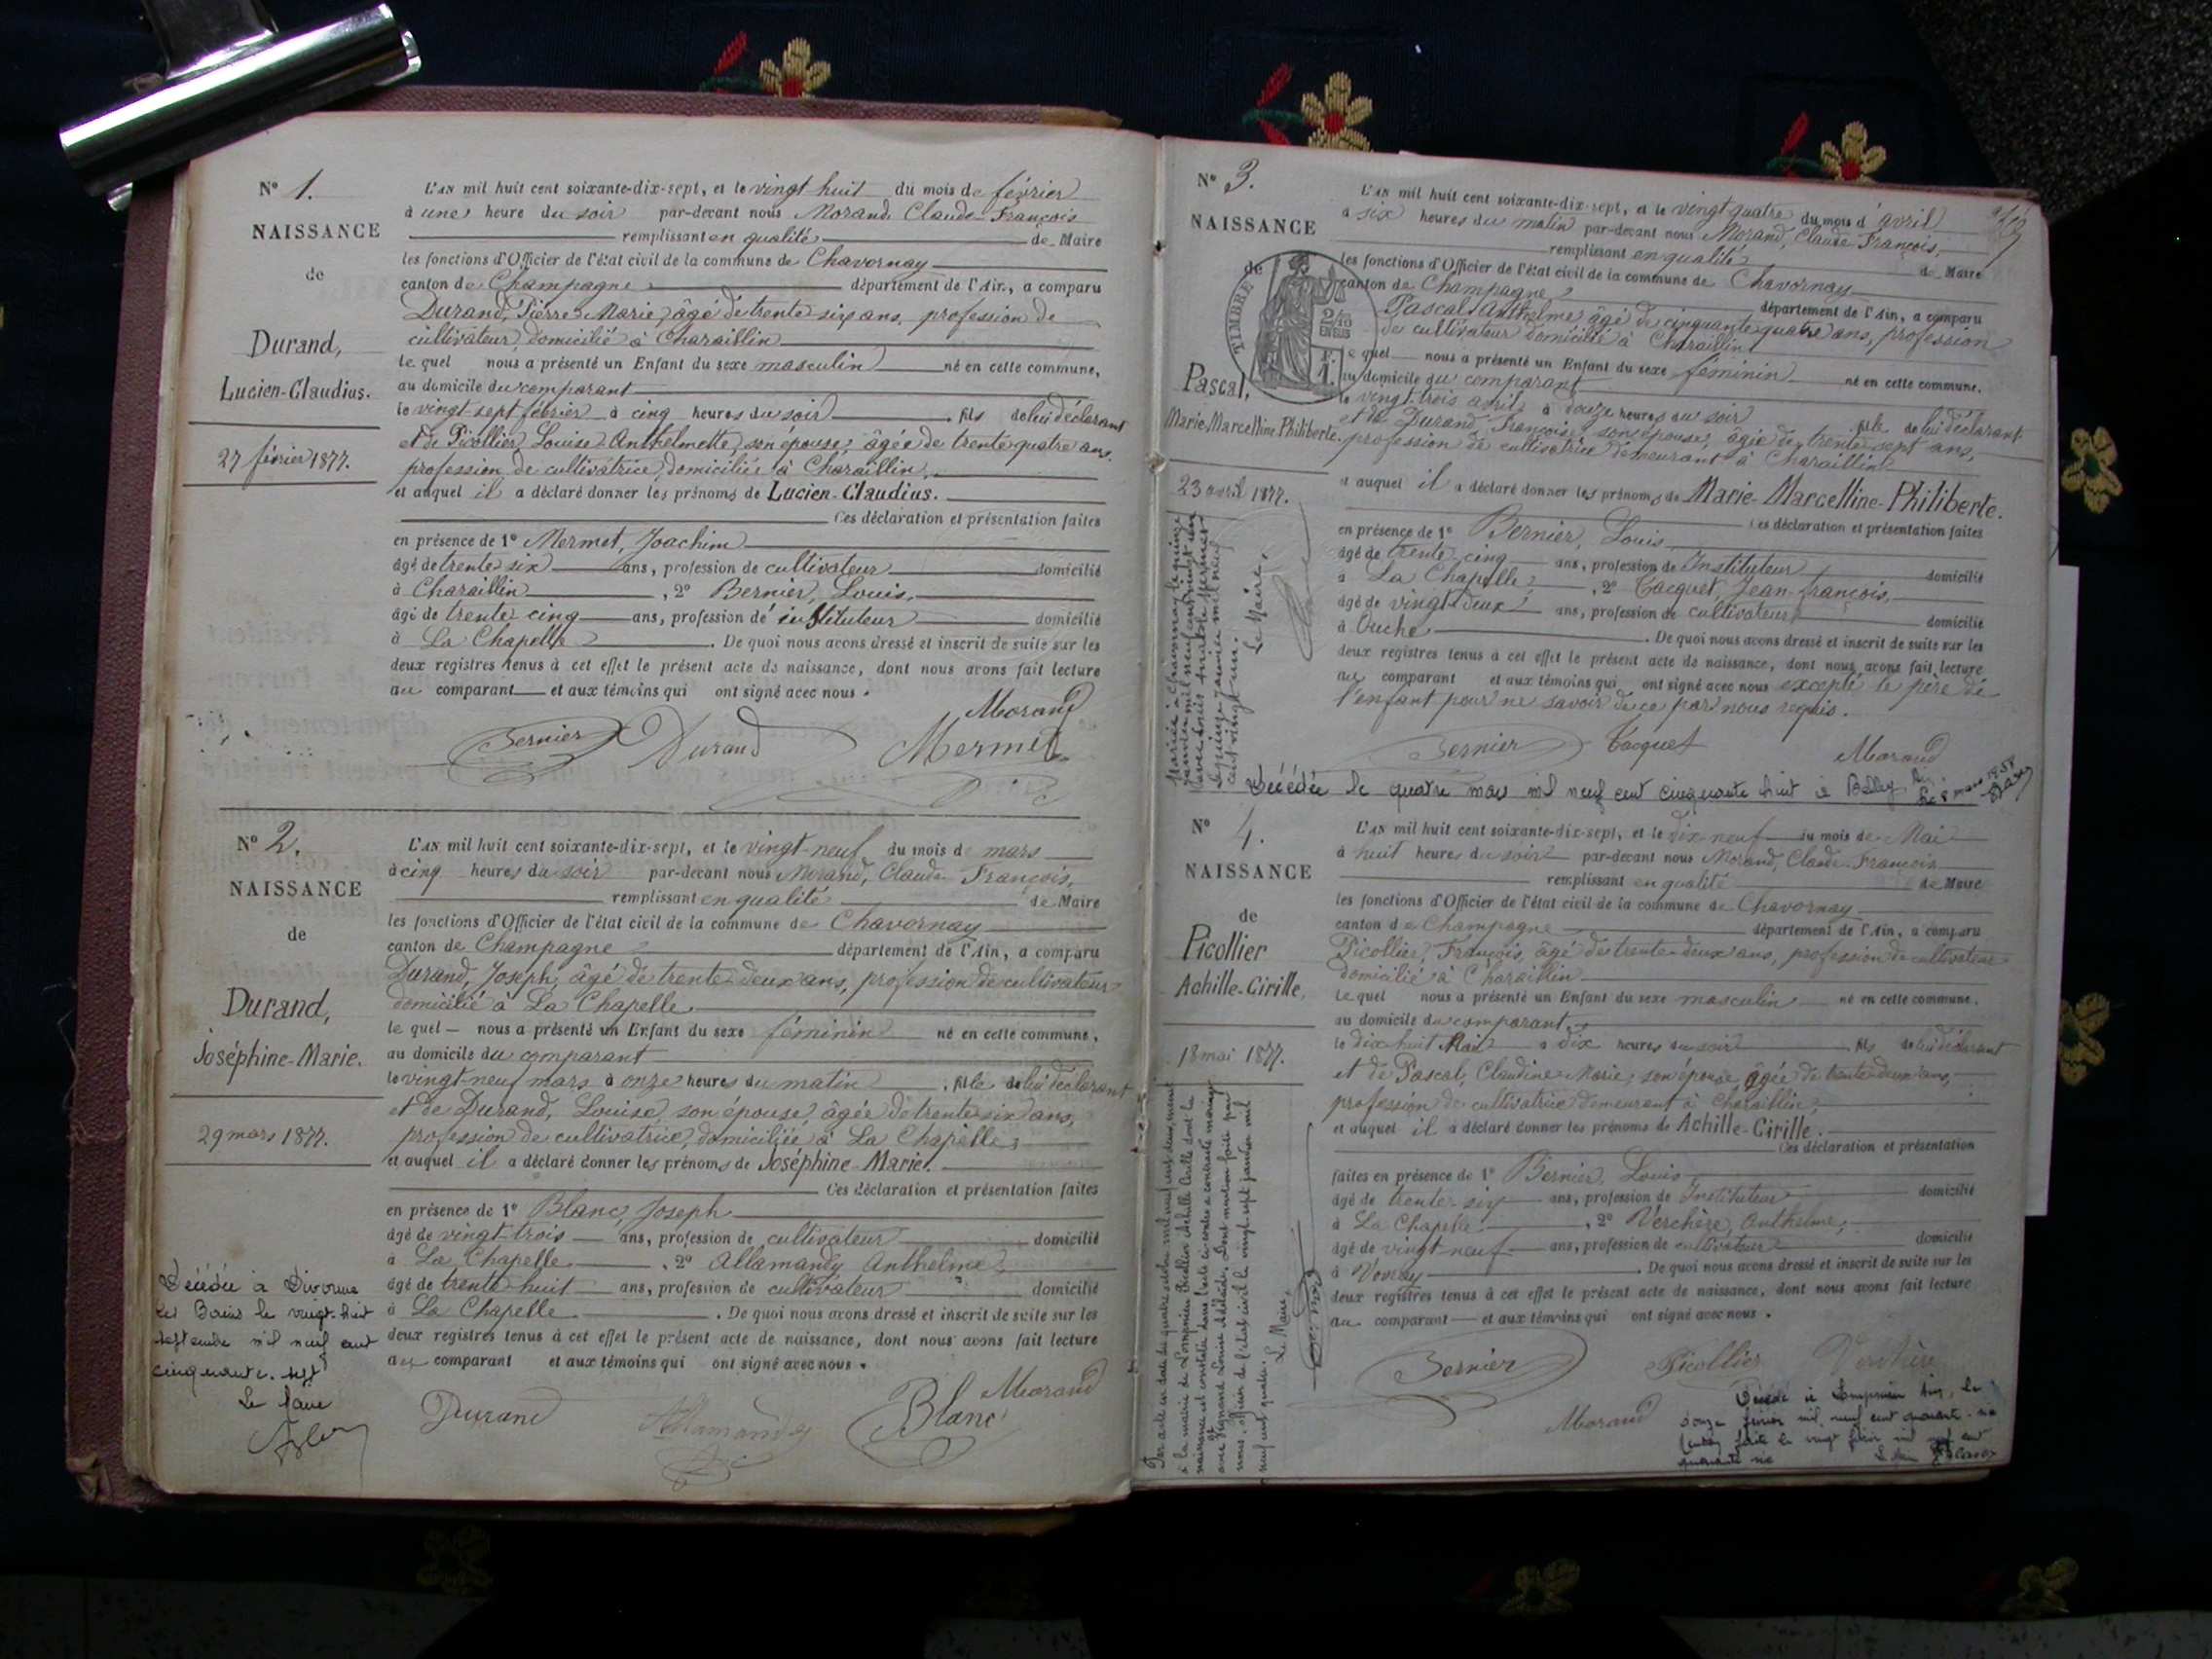 N° 1.
NAISSANCE
de
Durand,
Lucien-Claudius.
27 février 1877.
L'AN mil huit cent soixante-dix-sept, et le vingt huit du mois de février
à une heure du soir par-devant nous Morand Claude François
remplissant en qualité de Maire
les fonctions d'Officier de l'état civil de la commune de Chavornay
canton de Champagne département de l'Ain, a comparu
Durand, Pierre Marie, âgé de trente six ans, profession de
cultivateur, domicilié à Charaillin
le quel nous a présenté un Enfant du sexe masculin né en cette commune,
au domicile du comparant
le vingt-sept février à cinq heures du soir fils de lui déclarant
et de Picollier, Louise Anthelmette, son épouse, âgée de trente quatre ans.
profession de cultivatrice, domiciliée à Charaillin,
et auquel il a déclaré donner les prénoms de Lucien-Claudius.
Ces déclaration et présentation faites
en présence de 1° Mermet, Joachim
âgé de trente six ans, profession de cultivateur domicilié
à Charaillin , 2° Bernier, Louis,
âgé de trente cinq ans, profession d'instituteur domicilié
à La Chapelle . De quoi nous avons dressé et inscrit de suite sur les
deux registres tenus à cet effet le présent acte de naissance, dont nous avons fait lecture
au comparant et aux témoins qui ont signé avec nous.
Morand
Bernier Durand Mermet
N° 2.
NAISSANCE
de
Durand,
Joséphine-Marie.
29 mars 1877.
Décédée à Divonne
les Bains le vingt-huit
septembre mil neuf cent
cinquante-sept
Le Maire
L'AN mil huit cent soixante-dix-sept, et le vingt-neuf du mois de mars
à cinq heures du soir par-devant nous Morand, Claude François,
remplissant en qualité de Maire
les fonctions d'Officier de l'état civil de la commune de Chavornay
canton de Champagne département de l'Ain, a comparu
Durand, Joseph, âgé de trente deux ans, profession de cultivateur
domicilié à La Chapelle
le quel nous a présenté un Enfant du sexe féminin né en cette commune,
au domicile du comparant
le vingt-neuf mars à onze heures du matin , fille de lui déclarant
et de Durand, Louise, son épouse, âgée de trente six ans,
profession de cultivatrice, domiciliée à La Chapelle;
et auquel il a déclaré donner les prénoms de Joséphine-Marie.
Ces déclaration et présentation faites
en présence de 1° Blanc, Joseph
âgé de vingt-trois ans, profession de cultivateur domicilié
à La Chapelle , 2° Allamandy Anthelme
âgé de trente huit ans, profession de cultivateur domicilié
à La Chapelle . De quoi nous avons dressé et inscrit de suite sur les
deux registres tenus à cet effet le présent acte de naissance, dont nous avons fait lecture
au comparant et aux témoins qui ont signé avec nous.
Morand
Durand Allamandy Blanc
N° 3.
NAISSANCE
de
TIMBRE
2/10
EN SUS
Pascal,
Marie-Marcelline-Philiberte.
23 avril 1877.
Le Maire,
L'AN mil huit cent soixante-dix-sept, et le vingt quatre du mois d'avril
à six heures du matin par-devant nous Morand, Claude François,
remplissant en qualité de Maire
les fonctions d'Officier de l'état civil de la commune de Chavornay
canton de Champagne département de l'Ain, a comparu
Pascal Anthelme âgé de cinquante quatre ans, profession
de cultivateur domicilié à Charaillin
le quel nous a présenté un Enfant du sexe féminin né en cette commune.
au domicile du comparant
le vingt-trois avril à douze heures du soir fille de lui déclarant
et de Durand Françoise, son épouse, âgée de trente sept ans,
profession de cultivatrice demeurant à Charaillin
et auquel il a déclaré donner les prénoms de Marie-Marcelline-Philiberte.
Ces déclaration et présentation faites
en présence de 1° Bernier, Louis
âgé de trente cinq ans, profession de Instituteur domicilié
à La Chapelle , 2° Tacquet, Jean-François,
âgé de vingt-deux ans, profession de cultivateur domicilié
à Ouche . De quoi nous avons dressé et inscrit de suite sur les
deux registres tenus à cet effet le présent acte de naissance, dont nous avons fait lecture
au comparant et aux témoins qui ont signé avec nous excepté le père de
l'enfant pour ne savoir de ce par nous requis.
Bernier Tacquet Morand
Décédée le quatre mars mil neuf cent cinquante huit à Belley
N° 4.
NAISSANCE
de
Picollier
Achille-Cirille.
18 mai 1877.
Le Maire,
L'AN mil huit cent soixante-dix-sept, et le dix neuf du mois de Mai
à huit heures du soir par-devant nous Morand, Claude François
remplissant en qualité de Maire
les fonctions d'Officier de l'état civil de la commune de Chavornay
canton de Champagne département de l'Ain, a comparu
Picollier, François, âgé de trente-deux ans, profession de cultivateur
domicilié à Charaillin
le quel nous a présenté un Enfant du sexe masculin né en cette commune.
au domicile du comparant,
le dix huit Mai à dix heures du soir fils de lui déclarant
et de Pascal, Claudine Marie, son épouse, âgée de trente deux ans,
profession de cultivatrice demeurant à Charaillin,
et auquel il a déclaré donner les prénoms de Achille-Cirille.
Ces déclaration et présentation
faites en présence de 1° Bernier, Louis
âgé de trente-six ans, profession de Instituteur domicilié
à La Chapelle , 2° Verchère, Anthelme,
âgé de vingt-neuf ans, profession de cultivateur domicilié
à Vovray . De quoi nous avons dressé et inscrit de suite sur les
deux registres tenus à cet effet le présent acte de naissance, dont nous avons fait lecture
au comparant et aux témoins qui ont signé avec nous.
Bernier Picollier Verchère
Morand